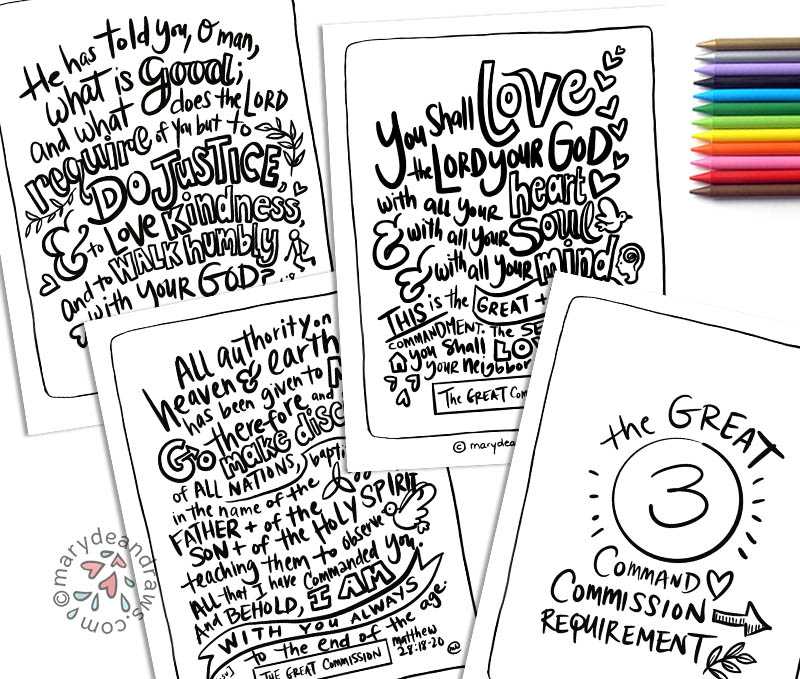 He has told you, O man,
what is good;
and what does the LORD
require of you but to
DO JUSTICE,
& to LOVE kindness,
and to WALK humbly
with YOUR GOD?
You Shall LOVE
the LORD your GOD
with all your heart
& with all your SOUL
& with all your mind
THIS is the GREAT +
COMMANDMENT. The
you shall
your neighbor
The GREAT
© maryde
All authority on
heaven & earth
has been given to
therefore and
Go make
of ALL NATIONS,
in the name of the
FATHER + of the
SON + of the HOLY SPIRIT
teaching them to observe
All that I have commanded you.
And BEHOLD, I AM
WITH YOU ALWAYS
to the end of the age.
THE GREAT COMMISSION
matthew
28:18-20
the GREAT
3
COMMAND
COMMISSION
REQUIREMENT
©marydeandraws.com